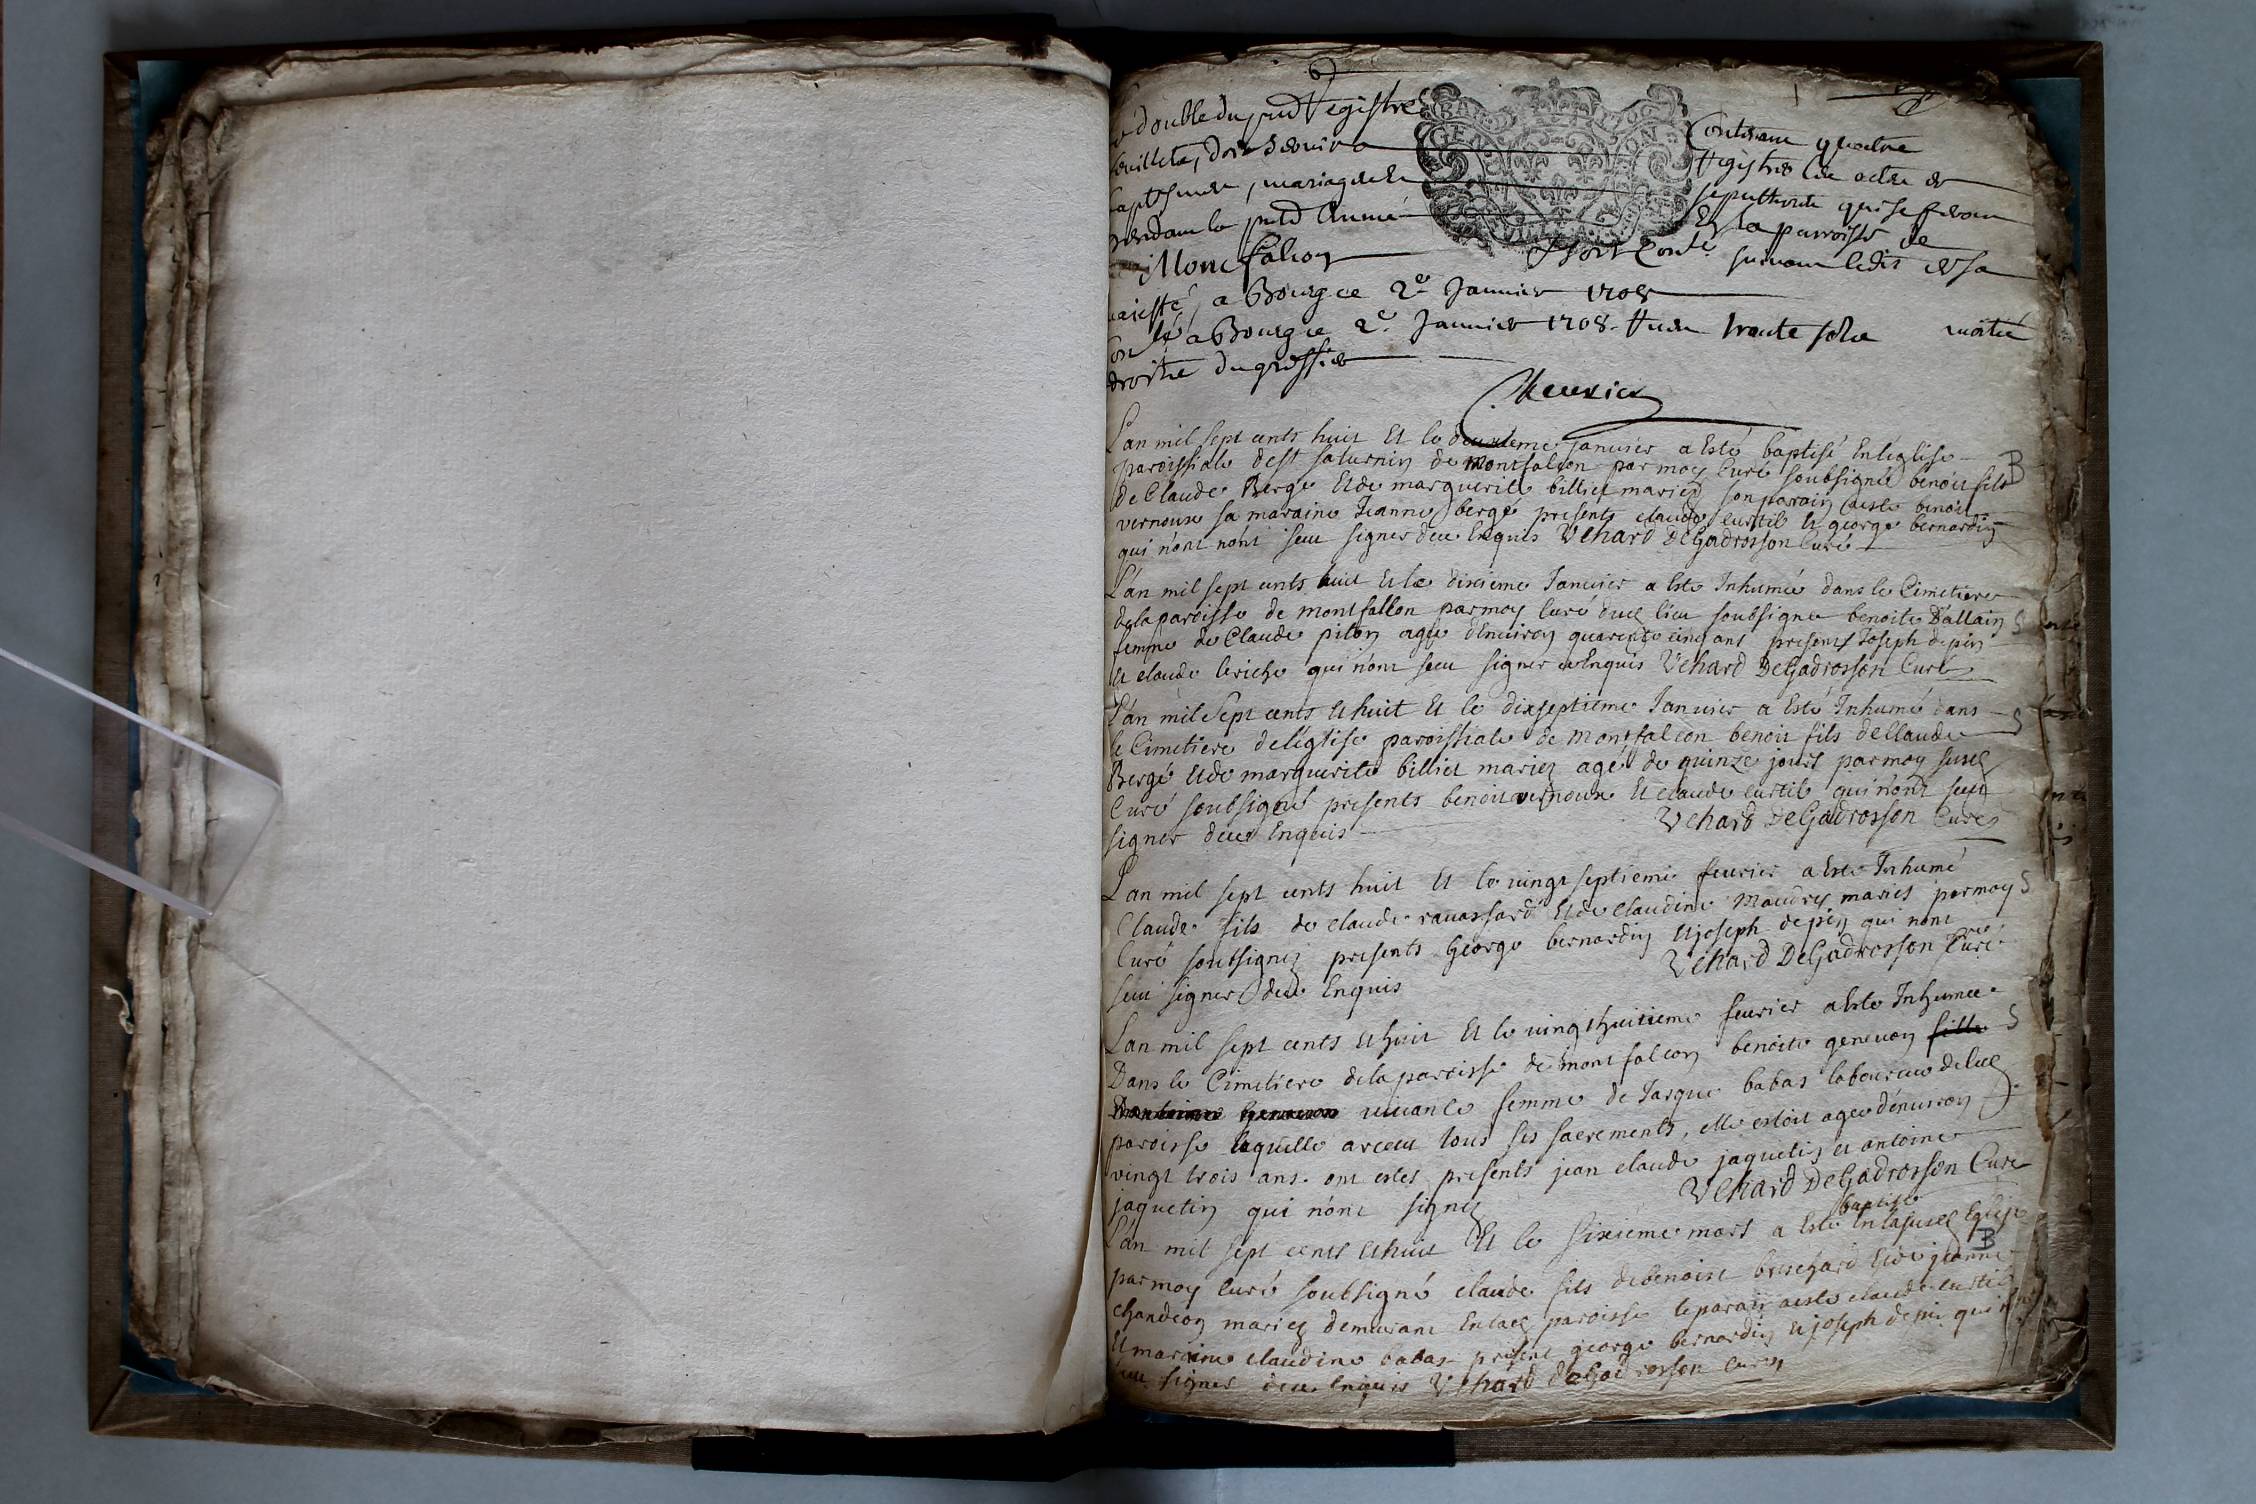 double du pnt Registre Contenant quatre
feuillets, doit servir a Registrer les actes de
baptesmes, mariages et sepultures qui se feront
pendant la pnte Année En la parroisse de
Montfalcon suivant ledit de sa
majesté, a Bourg ce 2e Janvier 1708
a Bourg ce 2e Janvier 1708 moitié
droits du greffier
L'an mil sept cents huit Et le deuxieme janvier a Esté baptisé En léglise
paroissiale de st saturnin de montfalcon par moy Curé soubsigné benoit fils B
de Claude Bergé Et de marguerite billiet mariez son parain a esté benoit
vernoux sa maraine Jeanne bergé presents claude curtil et george bernardin
qui n'ont seu signer deue Enquis Vehard DeGadrosson Curé
L'an mil sept cents huit Et le dixieme Janvier a Esté Inhumée dans le Cimetiere
de la paroisse de montfallon par moy Curé dud lieu soubsigné benoite Dallain S
femme de Claude piton agée d'Environ quarente cinq ans presents Joseph depin
et claude leriche qui n'ont seu signer de Enquis Vehard DeGadrosson Curé
L'an mil Sept cents et huit Et le dixseptieme Janvier a Esté Inhumé dans S
le Cimetiere de léglise paroissiale de montfalcon benoit fils de Claude
Bergé Et de marguerite billiet mariez agé de quinze jours par moy susd
Curé soubsigné presents benoit vernoux Et claude curtil qui n'ont seu
signer deue Enquis Vehard DeGadrosson Curé
L'an mil sept cents huit Et le vingt septieme fevrier a Esté Inhumé
Claude fils de claude ravassard Et de Claudine Maudry mariés par moy S
Curé soubsigné presents George bernardin et joseph depin qui n'ont
seu signer deue Enquis Vehard DeGadrosson Curé
L'an mil sept cents et huit Et le vingt huitieme fevrier a Esté Inhumée
Dans le Cimetiere de la paroisse de montfalcon benoite genevon fille S
vivante femme de Jasque babas laboureur de lad
paroisse laquelle a receu tous ses sacrements, elle estoit agée d'environ
vingt trois ans. ont estés presents jean claude jaquetin et antoine
jaquetin qui n'ont signé Vehard DeGadrosson Curé
L'an mil sept cents et huit Et le sixieme mars a Esté baptisé En la susd Eglise B
par moy Curé soubsigné claude fils de benoist brischard Et de jeanne
Chandeon mariez demeurant En lad paroisse le parain a esté claude curtil
Et maraine claudine babas present george bernardin et joseph depin qui n'ont
seu signer deue Enquis Vehard deGadrosson curé